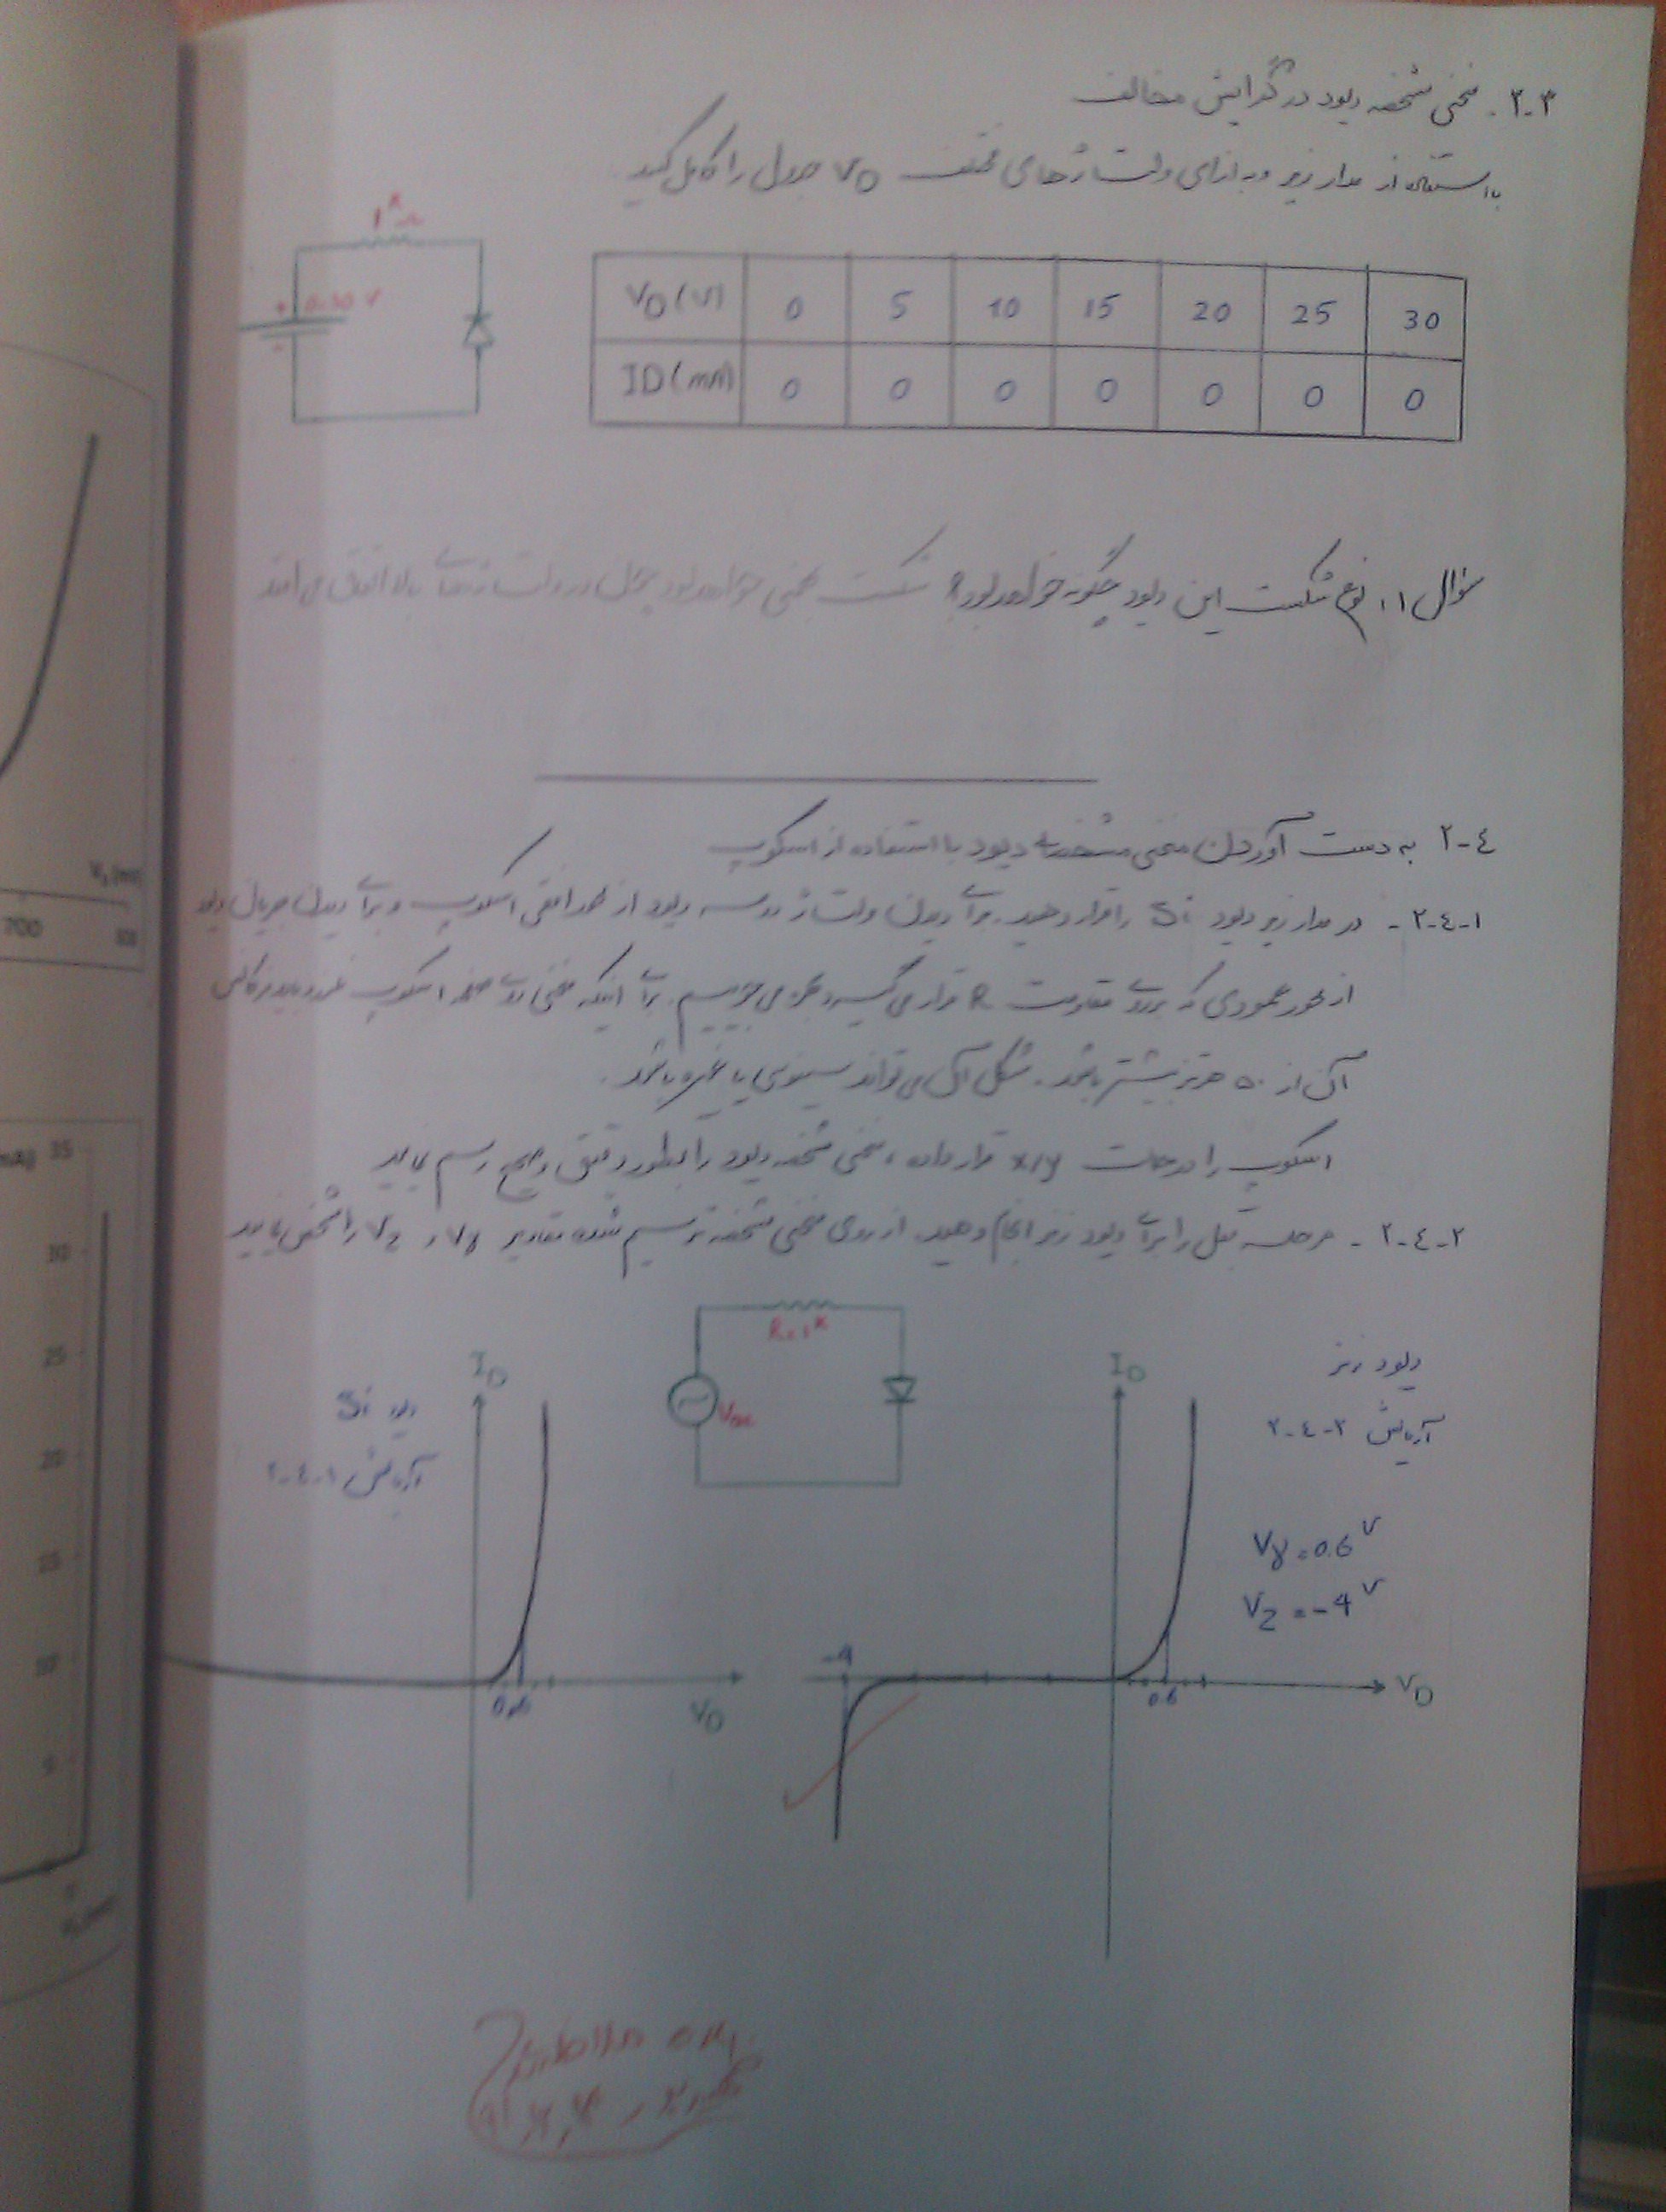 ۲-۳- منحنی مشخصه دیود در گرایش مخالف
با استفاده از مدار زیر و به ازای ولتاژهای مختلف VD جدول را کامل کنید
1K Ω
+ 0-30 V
-
VD(V) 0 5 10 15 20 25 30
ID(mA) 0 0 0 0 0 0 0
سؤال ۱: نوع شکست این دیود چگونه خواهد بود؟ شکست بهمنی خواهد بود چون در ولتاژهای بالا اتفاق می افتد
۲-٤ به دست آوردن منحنی مشخصه دیود با استفاده از اسکوپ
۲-٤-۱- در مدار زیر دیود Si را قرار دهید. برای دیدن ولتاژ دو سر دیود از محور افقی اسکوپ و برای دیدن جریان دیود
از محور عمودی که بر روی مقاومت R قرار می گیرد بهره می جوییم. برای اینکه منحنی روی صفحه اسکوپ باید فرکانس
آن از ۵۰ هرتز بیشتر باشد. شکل آن می تواند سینوسی یا غیره باشد.
اسکوپ را در حالت x/y قرار داده، منحنی مشخصه دیود را بطور دقیق و صحیح رسم نمایید
۲-٤-۲- مرحله قبل را برای دیود زنر انجام دهید. از روی منحنی مشخصه ترسیم شده مقادیر Vγ و Vz را مشخص نمایید
R=1K
دیود Si
آزمایش ۲-٤-۱
ID
0.6
VD
دیود زنر
آزمایش ۲-٤-۲
ID
Vγ=0.6V
VZ=-4V
-4
0.6
VD
VD(mV)
700
mA)
35
30
25
20
15
10
5